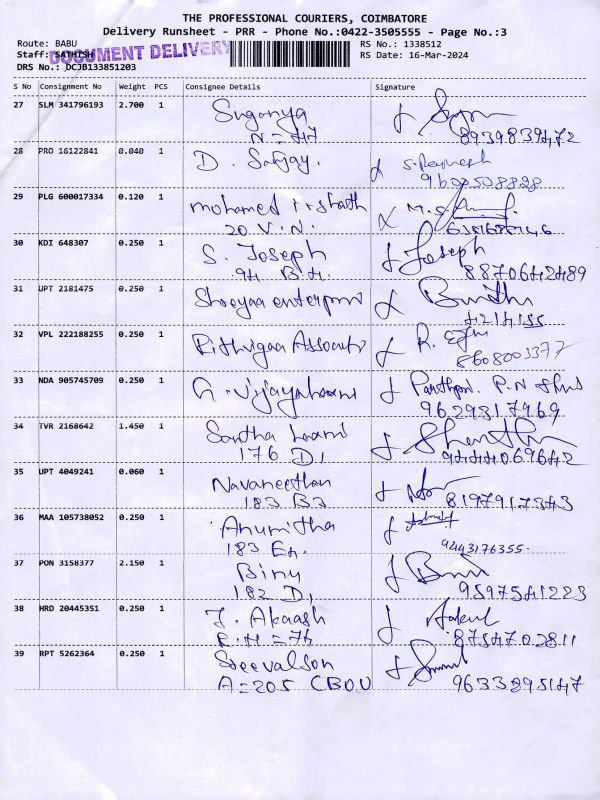 THE PROFESSIONAL COURIERS, COIMBATORE
Delivery Runsheet - PRR - Phone No.:0422-3505555 - Page No.:3
Route: BABU RS No.: 1338512
Staff: SATHISH RS Date: 16-Mar-2024
DOCUMENT DELIVERY
DRS No.: DCJB133851203
S No Consignment No Weight PCS Consignee Details Signature
27 SLM 341796193 2.700 1 Suganya
N=47 8939839472
28 PRO 16122841 0.040 1 D. Sanjay.
9600508828
29 PLG 600017334 0.120 1 mohamed
20 V.N.
30 KDI 648307 0.250 1 S. Joseph Joseph
94 B4. 8870642489
31 UPT 2181475 0.250 1 Shreyaa enterpri
4214155
32 VPL 222188255 0.250 1 Rithigaa Associats R.
8608003377
33 NDA 905745709 0.250 1
9629317969
34 TVR 2168642 1.450 1 Santha laxmi Shanthi
176 D1 9444069642
35 UPT 4049241 0.060 1 Navaneethan
183 B3 8197917343
36 MAA 105738052 0.250 1 Anumitha
183 9443176355.
37 PON 3158377 2.150 1 Binu
182 D1 9597541223
38 HRD 20445351 0.250 1 J. Akaash
R.H=74 8754702811
39 RPT 5262364 0.250 1 Sreevalson
A=205 CBDU 9633895147